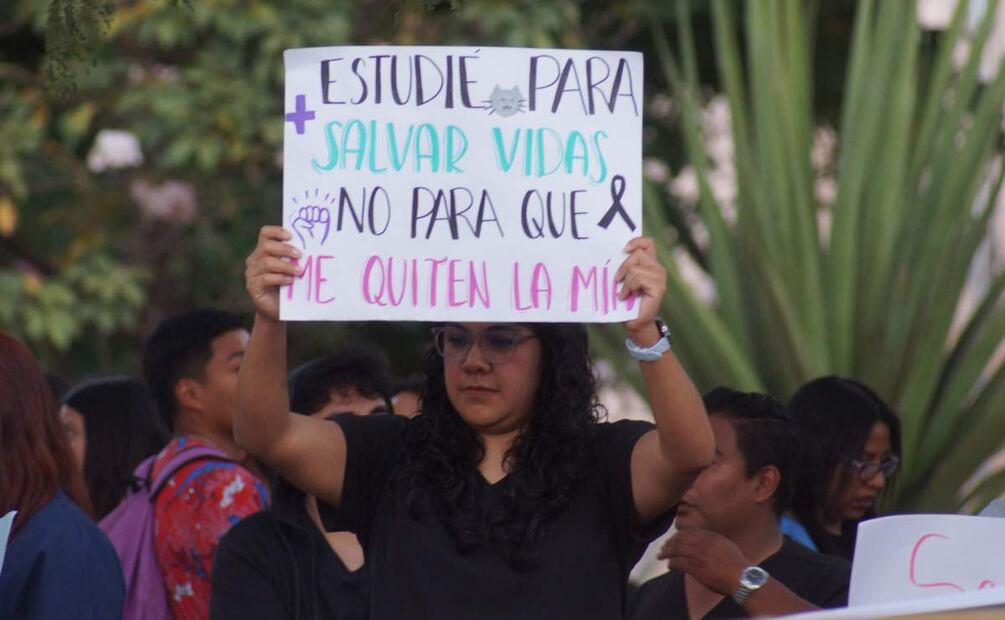 ESTUDIÉ PARA
SALVAR VIDAS
NO PARA QUE
ME QUITEN LA MÍA